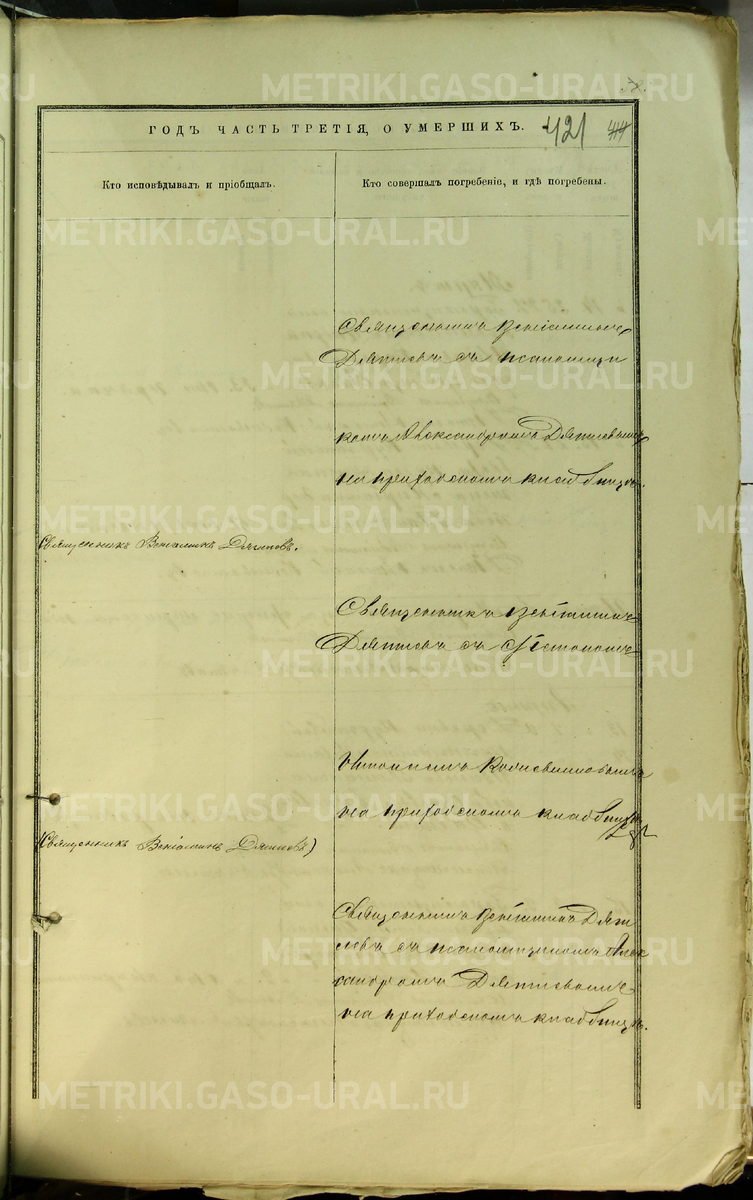 ГОДЪ ЧАСТЬ ТРЕТІЯ, О УМЕРШИХЪ.
421
44
Кто исповѣдывалъ и пріобщалъ.
Кто совершалъ погребеніе, и гдѣ погребены.
Священникъ Веніаминъ
Дягилевъ съ псаломщи
комъ Александромъ Дягилевымъ
на приходскомъ кладбищѣ.
Священникъ Веніаминъ Дягилевъ.
Священникъ Веніаминъ
Дягилевъ съ
на приходскомъ кладбищѣ
(Священникъ Веніаминъ Дягилевъ)
Священникъ Веніаминъ Дяги
левъ съ псаломщикомъ Алек
сандромъ Дягилевымъ
на приходскомъ кладбищѣ.
METRIKI.GASO-URAL.RU